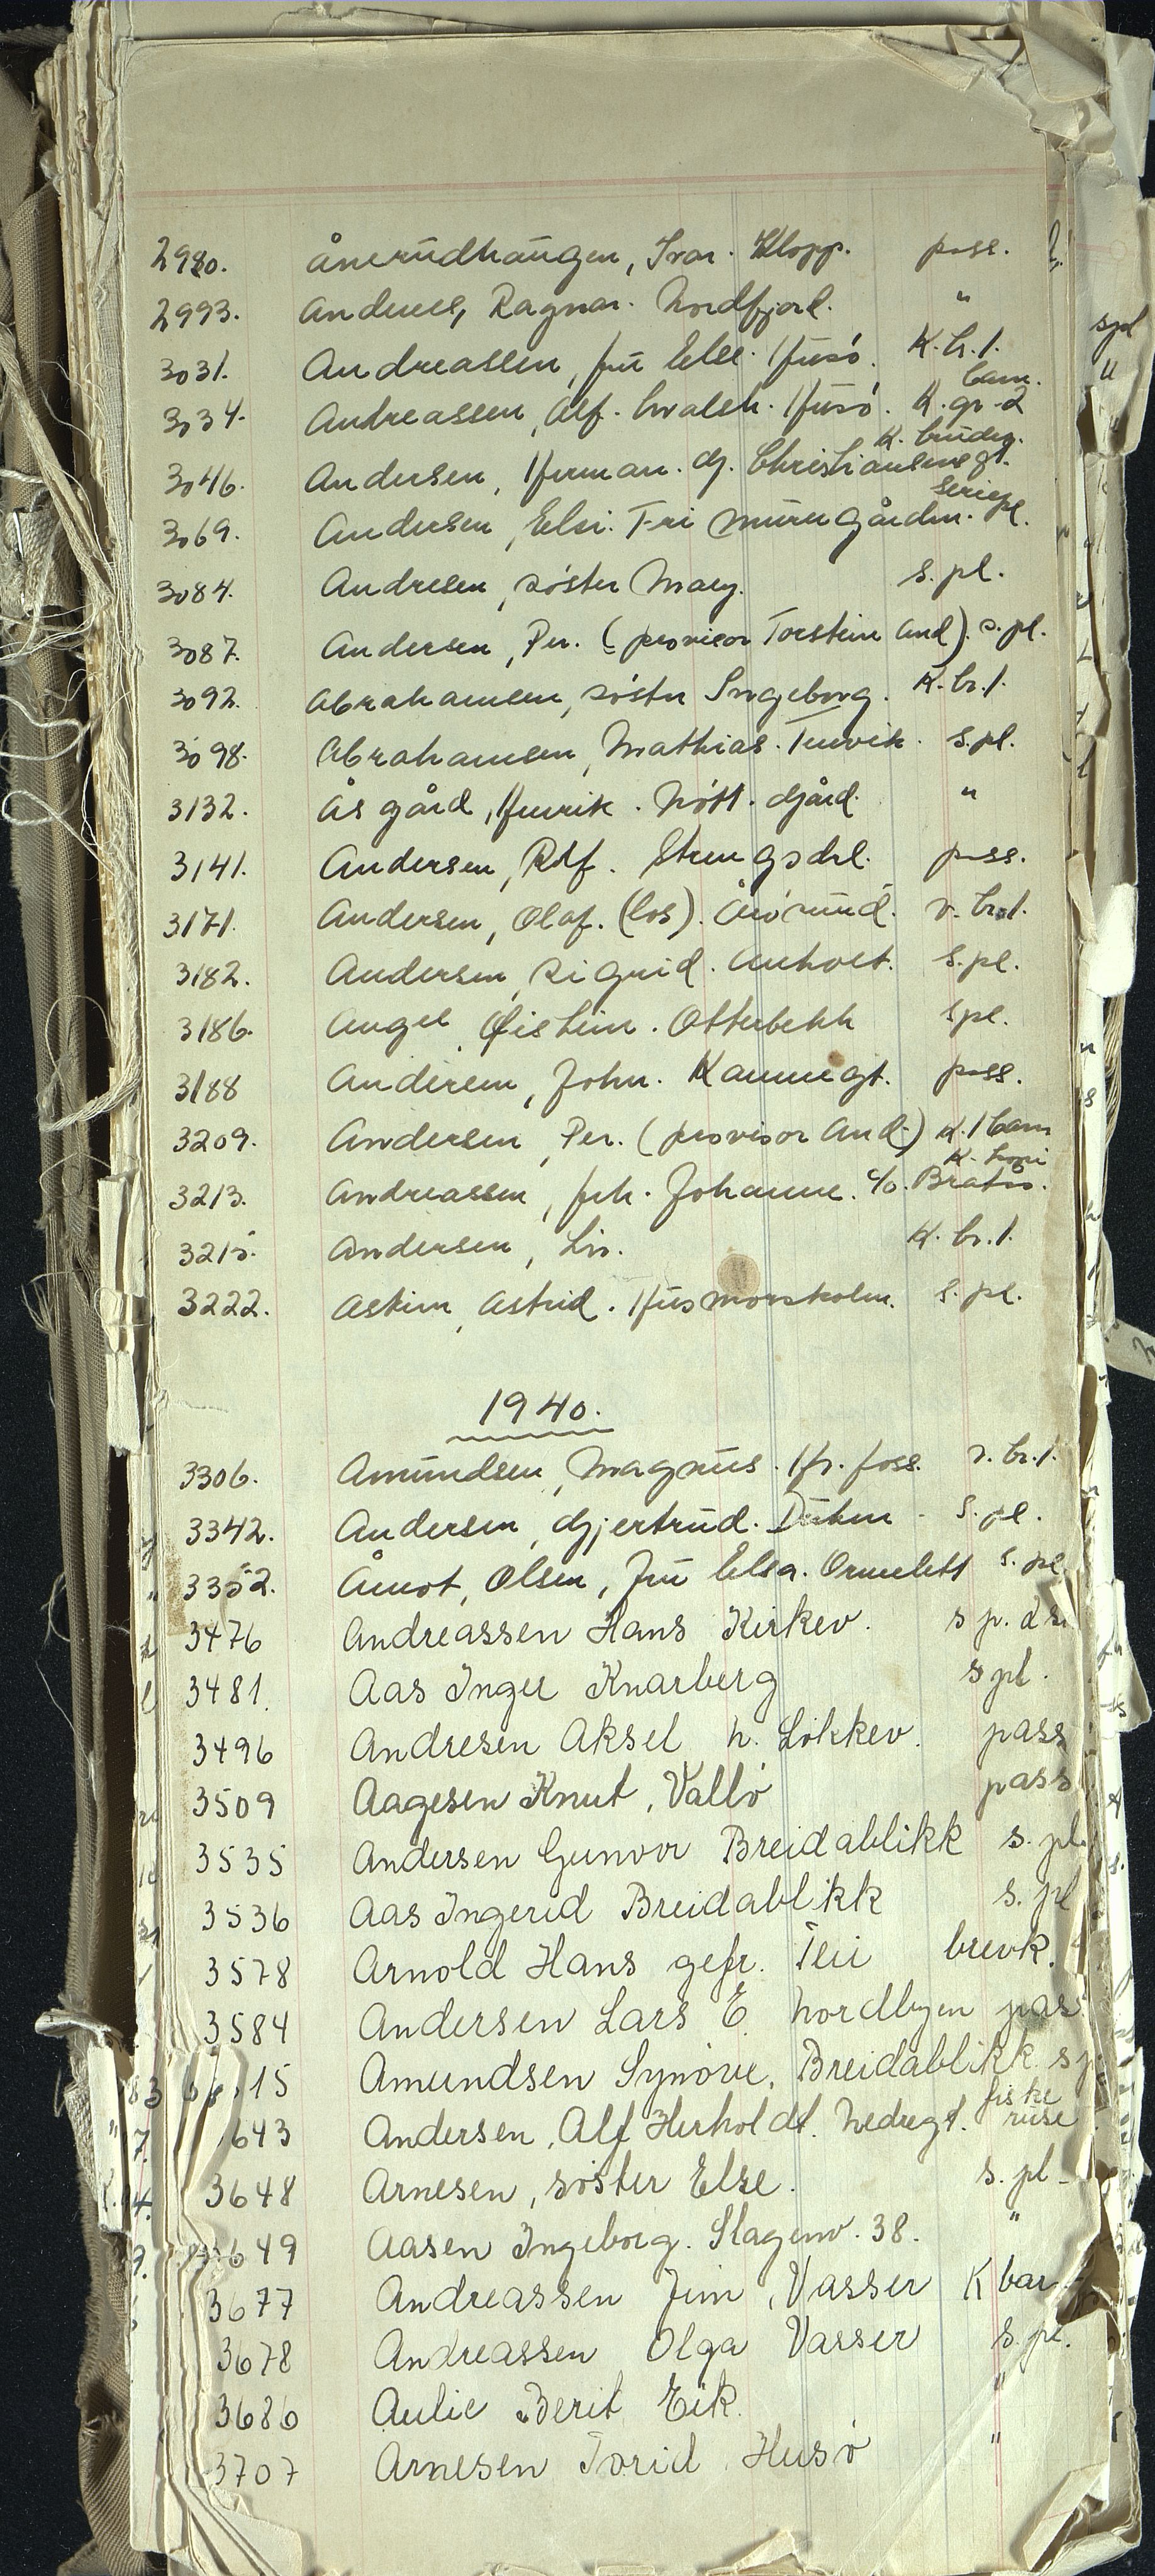 2980. Ånerudhaugen, Ivar. Klopp. pass.
2993. Andersen, Ragnar. Nordfjord. "
3031. Andreassen, fru Else. Husö. K.br.1.
3034. Andreassen, Alf. Husö. K.gr-2 barn.
3046. Andersen, Herman. Christiansensgt. K.
3069. Andersen, Elsi. Frimurergården. seriepl.
3084. Andresen, söster Mary. s.pl.
3087. Andersen, Per. (provisor Torstein And). s.pl.
3092. Abrahamsen, söster Ingeborg. K.br.1.
3098. Abrahamsen, Mathias. s.pl.
3132. Åsgård, Henrik. Nött. "
3141. Andersen, Rolf. Strengsdal. pass.
3171. Andersen, Olaf. (los). Årösund. v.br.1.
3182. Andersen, Sigrid. Anholt. s.pl.
3186. Angel, Øistein. Otterbekk spl.
3188 Andersen, John. Kammegt. pass.
3209. Andersen, Per. (provisor And.) K.1 barn
3213. Andreassen, frk. Johanne. c/o. Bratås. K.
3215. Andersen, Liv. K.br.1.
3222. Askim, Astrid. Husmorskolen. s.pl.
1940.
3306. Amundsen, Magnus. Hr. foss. v.br.1.
3342. Andersen, Gjertrud. s.pl.
3352. Åmot, Olsen, fru Elsa. Ormelett s.pl.
3476 Andreassen Hans Kirkev. s p.
3481. Aas Inger Knarberg s pl.
3496 Andresen Aksel n. Løkkev. pass
3509 Aagesen Knut, Vallö pass
3535 Andersen Gunvor Breidablikk s. pl.
3536 Aas Ingerid Breidablikk s. pl
3578 Arnold Hans gefr. Teie brevk.
3584 Andersen Lars E. Nordbyen pas
15 Amundsen Synöve, Breidablikk s p
643 Andersen, Alf Herholdt. Nedregt. fiske ruse
3648 Arnesen, söster Else. s. pl-
649 Aasen Ingeborg. Slagenv. 38. "
3677 Andreassen Jim, Vasser K bar
3678 Andreassen Olga Vasser s. pl.
3686 Aulie Berit Eik. "
3707 Arnesen Torid Husö "